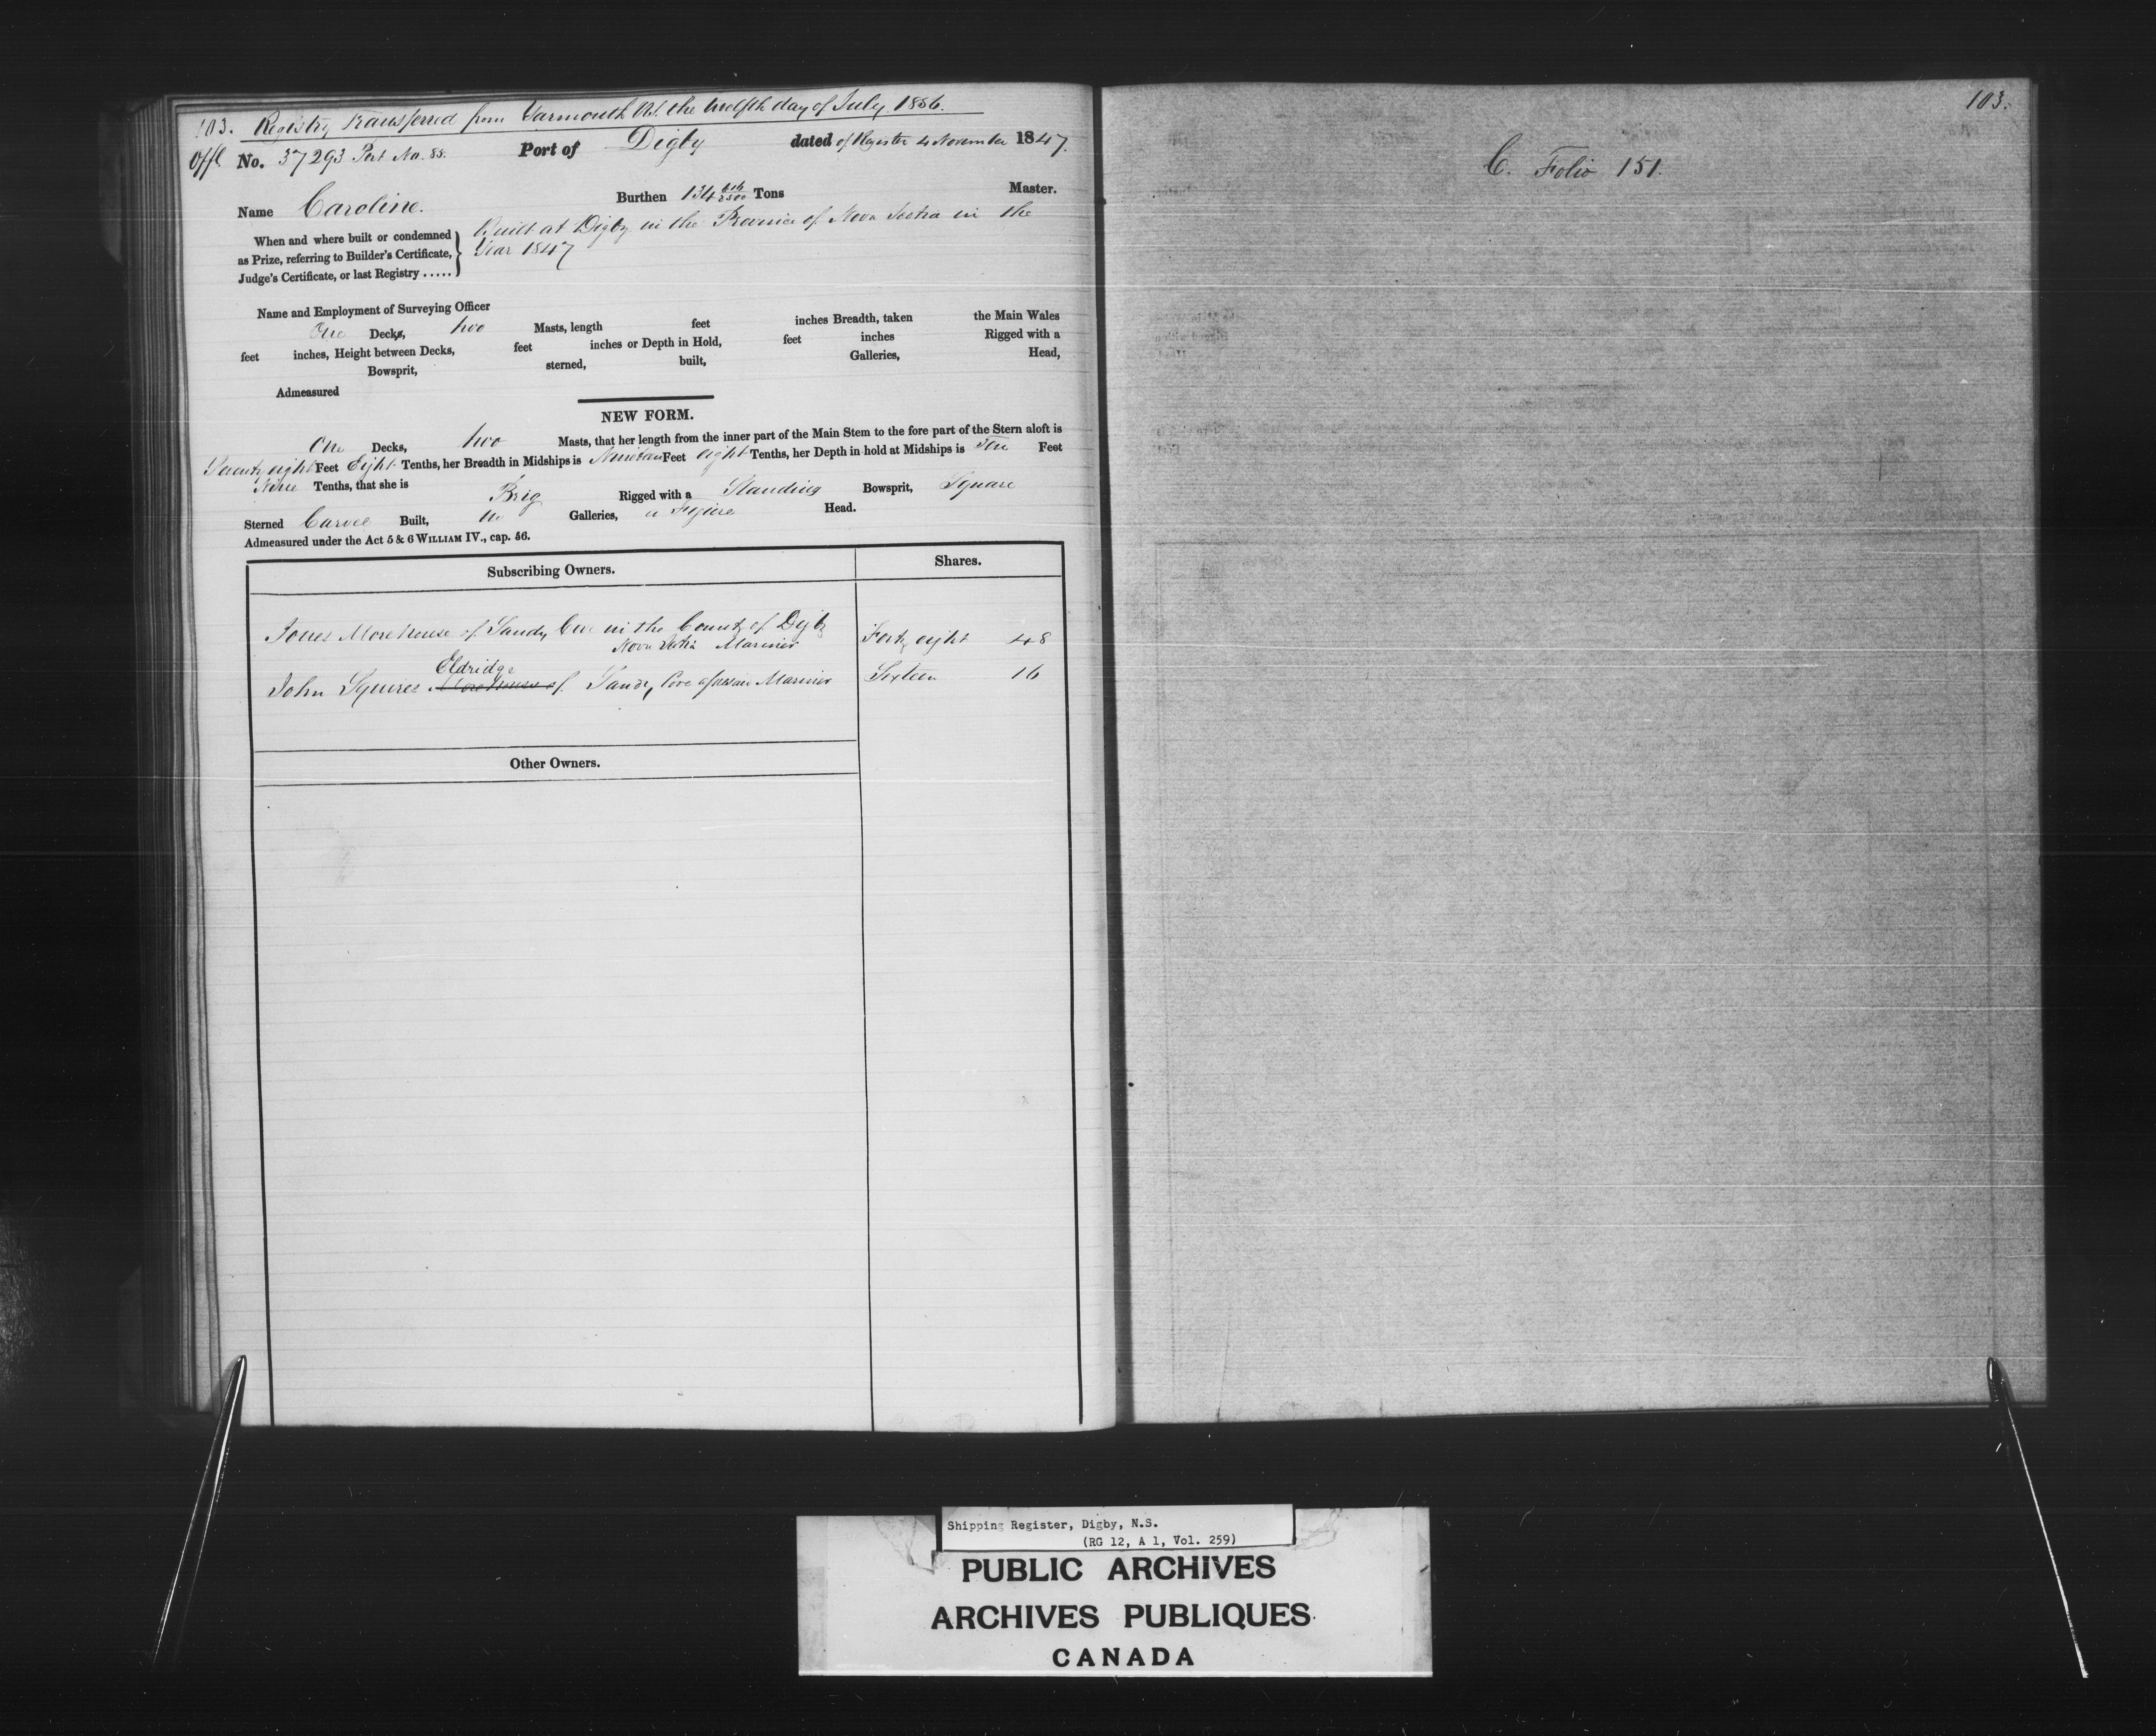 103. Registry Transferred from Yarmouth N.S. the twelfth day of July 1856.
Offl No. 37293 Port No. 88. Port of Digby dated of Register 4 November 1847.
Name Caroline. Burthen 134 Tons Master.
When and where built or condemned as Prize, referring to Builder's Certificate, Judge's Certificate, or last Registry..... Built at Digby in the Province of Nova Scotia in the
Year 1847
Name and Employment of Surveying Officer
One Decks, two Masts, length feet inches Breadth, taken the Main Wales
feet inches, Height between Decks, feet inches or Depth in Hold, feet inches Rigged with a
Bowsprit, sterned, built, Galleries, Head,
Admeasured
NEW FORM.
One Decks, two Masts, that her length from the inner part of the Main Stem to the fore part of the Stern aloft is
Seventy eight Feet Eight Tenths, her Breadth in Midships is Nineteen Feet eight Tenths, her Depth in hold at Midships is Ten Feet
Nine Tenths, that she is Brig Rigged with a Standing Bowsprit, Square
Sterned Carvel Built, no Galleries, a Figure Head.
Admeasured under the Act 5 & 6 WILLIAM IV., cap. 56.
Subscribing Owners. Shares.
Jones Morehouse of Sandy Cove in the County of Digby Forty eight 48
Nova Scotia Mariner
Eldridge
John Squires Morehouse of Sandy Cove aforesaid Mariner Sixteen 16
Other Owners.
103.
C. Folio 151.
Shipping Register, Digby, N.S.
(RG 12, A 1, Vol. 259)
PUBLIC ARCHIVES
ARCHIVES PUBLIQUES
CANADA